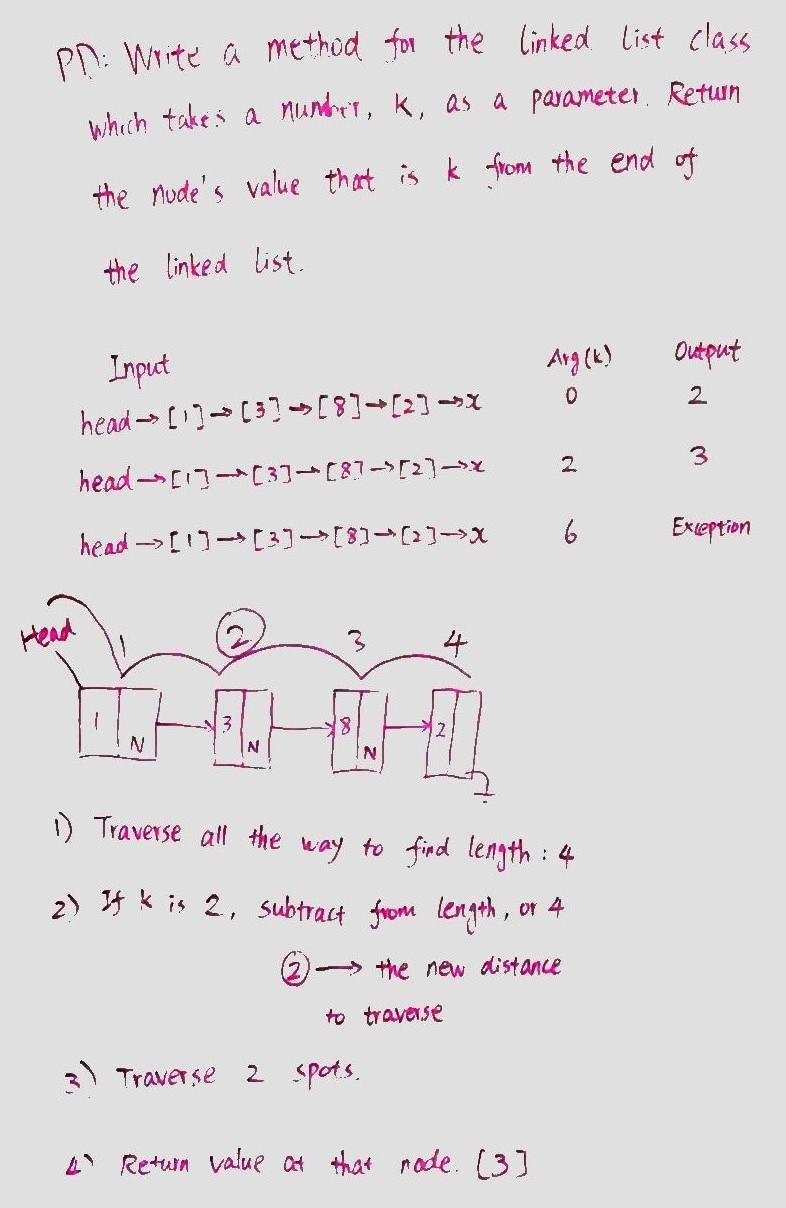 PD: Write a method for the linked list class
which takes a number, k, as a parameter. Return
the node's value that is k from the end of
the linked list.
Input Arg(k) Output
head → [1] → [3] → [8] → [2] → x 0 2
head → [1] → [3] → [8] → [2] → x 2 3
head → [1] → [3] → [8] → [2] → x 6 Exception
Head 1 2 3 4
1 N 3 N 8 N 2
1) Traverse all the way to find length : 4
2) If k is 2, subtract from length, or 4
2 → the new distance
to traverse
3) Traverse 2 spots.
4) Return value at that node. [3]